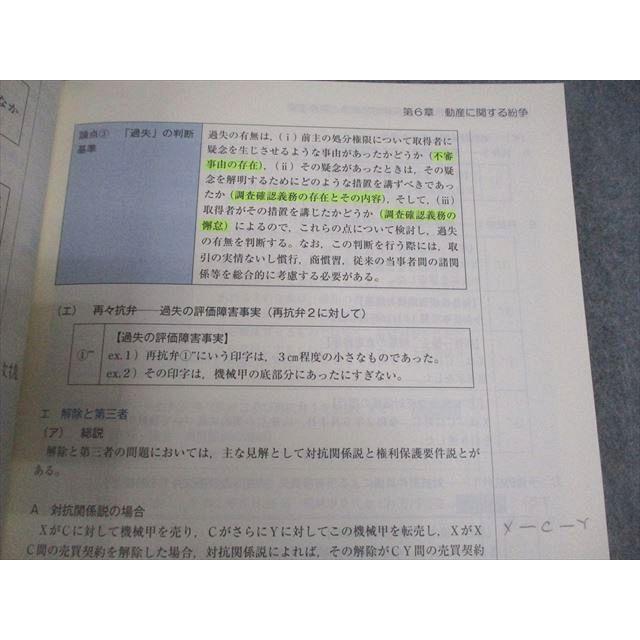 なか
第6章 動産に関する紛争
論点③ 「過失」の判断
基準
過失の有無は，(ⅰ)前主の処分権限について取得者に
疑念を生じさせるような事由があったかどうか(不審
事由の存在)，(ⅱ)その疑念があったときは，その疑
念を解明するためにどのような措置を講ずべきであっ
たか(調査確認義務の存在とその内容)，そして，(ⅲ)
取得者がその措置を講じたかどうか(調査確認義務の
懈怠)によるので，これらの点について検討し，過失
の有無を判断する。なお，この判断を行う際には，取
引の実情ないし慣行，商慣習，従来の当事者間の諸関
係等を総合的に考慮する必要がある。
(エ) 再々抗弁――過失の評価障害事実(再抗弁2に対して)
【過失の評価障害事実】
ex.1) 再抗弁①‴にいう印字は，3㎝程度の小さなものであった。
ex.2) その印字は，機械甲の底部分にあったにすぎない。
エ 解除と第三者
(ア) 総説
解除と第三者の問題においては，主な見解として対抗関係説と権利保護要件説とが
ある。
A 対抗関係説の場合
XがCに対して機械甲を売り，CがさらにYに対してこの機械甲を転売し，XがX
C間の売買契約を解除した場合，対抗関係説によれば，その解除がCY間の売買契約
X－C－Y